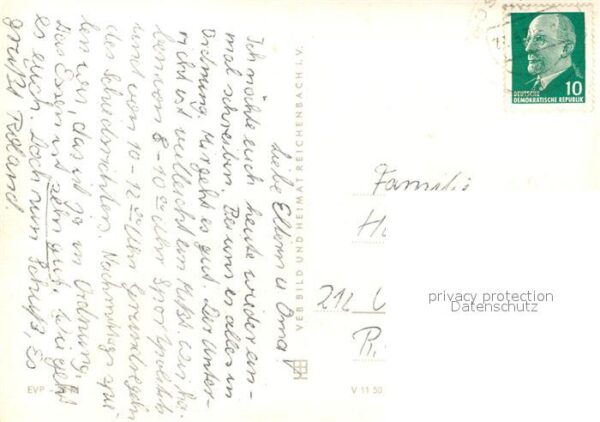 Liebe Eltern u Oma,
Ich möchte euch heute wieder ein-
mal schreiben. Bei uns es alles in
Ordnung. Mir geht es gut. Der Unter-
richt ist vielleicht um Wir ha-
ben von 8-10⁰⁰ Uhr Sportpolitik
und von 10-12⁰⁰ Uhr Grundregeln
des Schiedsrichters. Nachmittags spie-
len wir, das ist ja in Ordnung.
Das Essen ist sehr gut. Wie geht
es euch. Doch nun Schluß, Es
grüßt Roland
VEB BILD UND HEIMAT REICHENBACH I. V.
DEUTSCHE
DEMOKRATISCHE REPUBLIK
10
Familie
212
privacy protection
Datenschutz
EVP
V 11 50